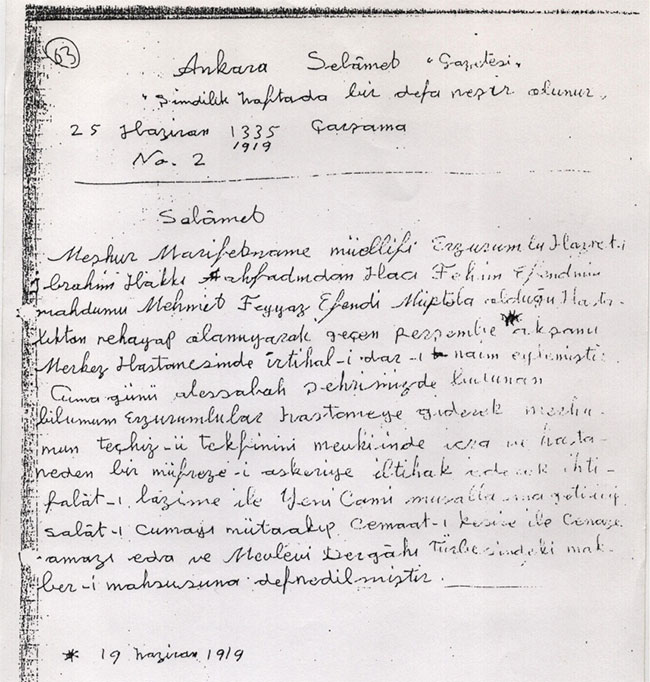 63
Ankara Selâmet "Gazetesi"
"Şimdilik haftada bir defa neşir olunur"
25 Haziran 1335 Çarşamba
1919
No. 2
Selâmet
Meşhur Marifetname müellifi Erzurumlu Hazret-i
İbrahim Hakkı Aahfadından Hacı Fehim Efendinin
mahdumu Mehmet Feyyaz Efendi Müptela olduğu Hasta-
lıktan rehayap olamıyarak geçen perşembe * akşamı
Merkez Hastanesinde irtihal-i dar-ı naim eylemiştir.
Cuma günü alessabah şehrimizde bulunan
bilumum Erzurumlular hastaneye giderek merhu-
mun teçhiz-ü tekfinini mevkiinde icra ve hasta-
neden bir müfreze-i askeriye iltihak ederek ihti-
falât-ı lazime ile Yeni Cami musallasına götürüp
salât-ı Cumayı mütaakıp Cemaat-ı kesire ile Cenaze
namazı eda ve Mevlevi Dergâhı Türbesindeki mak-
ber-i mahsusuna defnedilmiştir.
* 19 haziran 1919